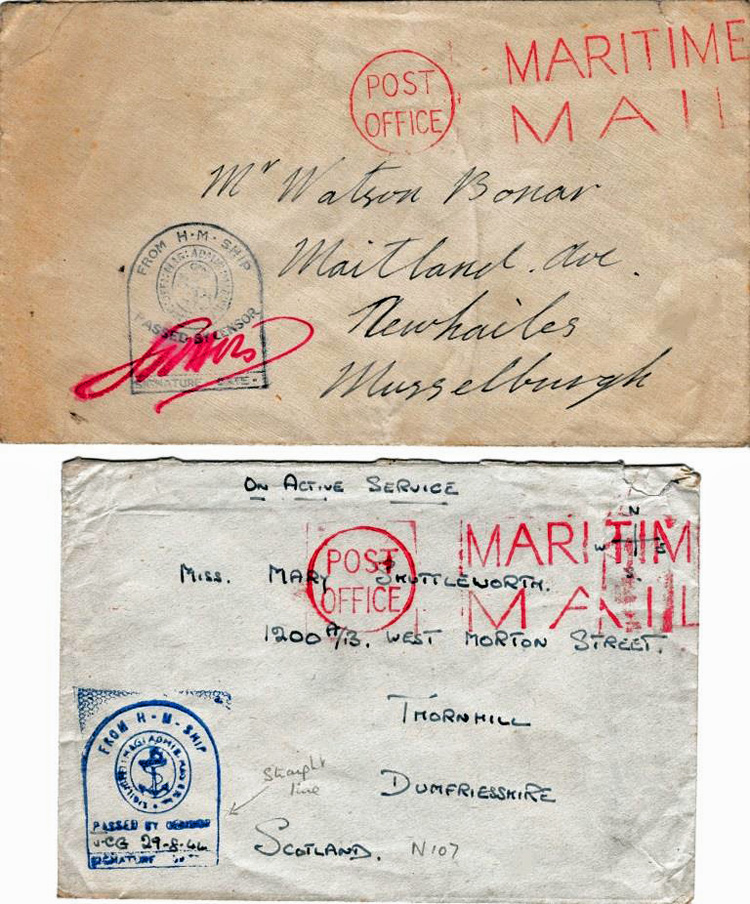 POST OFFICE
MARITIME
MAIL
Mr Watson Bonar
Maitland. Ave.
Newhailes
Musselburgh
FROM H·M·SHIP
PASSED BY CENSOR
SIGNATURE DATE
ON ACTIVE SERVICE
POST OFFICE
MARITIM
MAIL
N
W
S
MISS. MARY SHUTTLEWORTH.
1200 A/B. WEST MORTON STREET.
THORNHILL
DUMFRIESSHIRE
SCOTLAND. N107
FROM H·M·SHIP
PASSED BY CENSOR
29-8-44
SIGNATURE
Straight
line